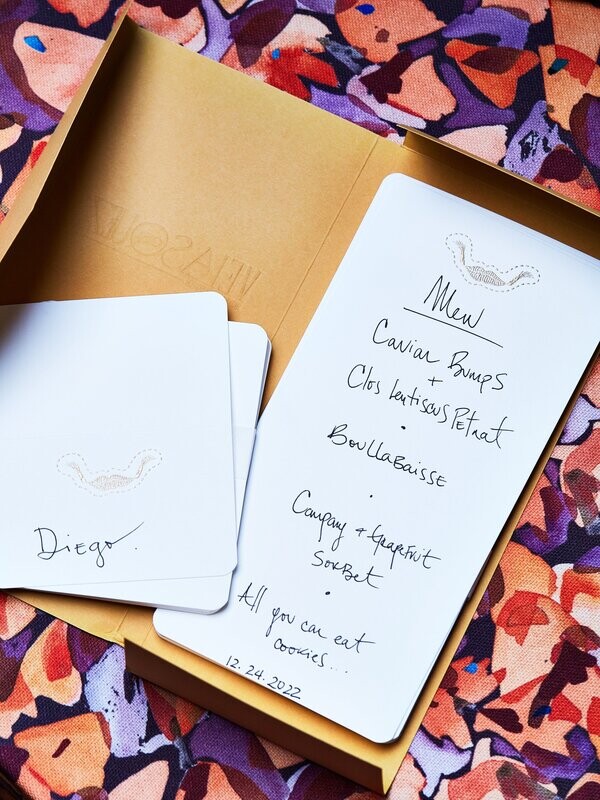 Menu
Caviar Bumps
+
Clos Lentiscus Petnat
•
BouLLaBaisse
•
Campary + Grapefruit
Sorbet
•
All you can eat
cookies...
12.24.2022
Diego.